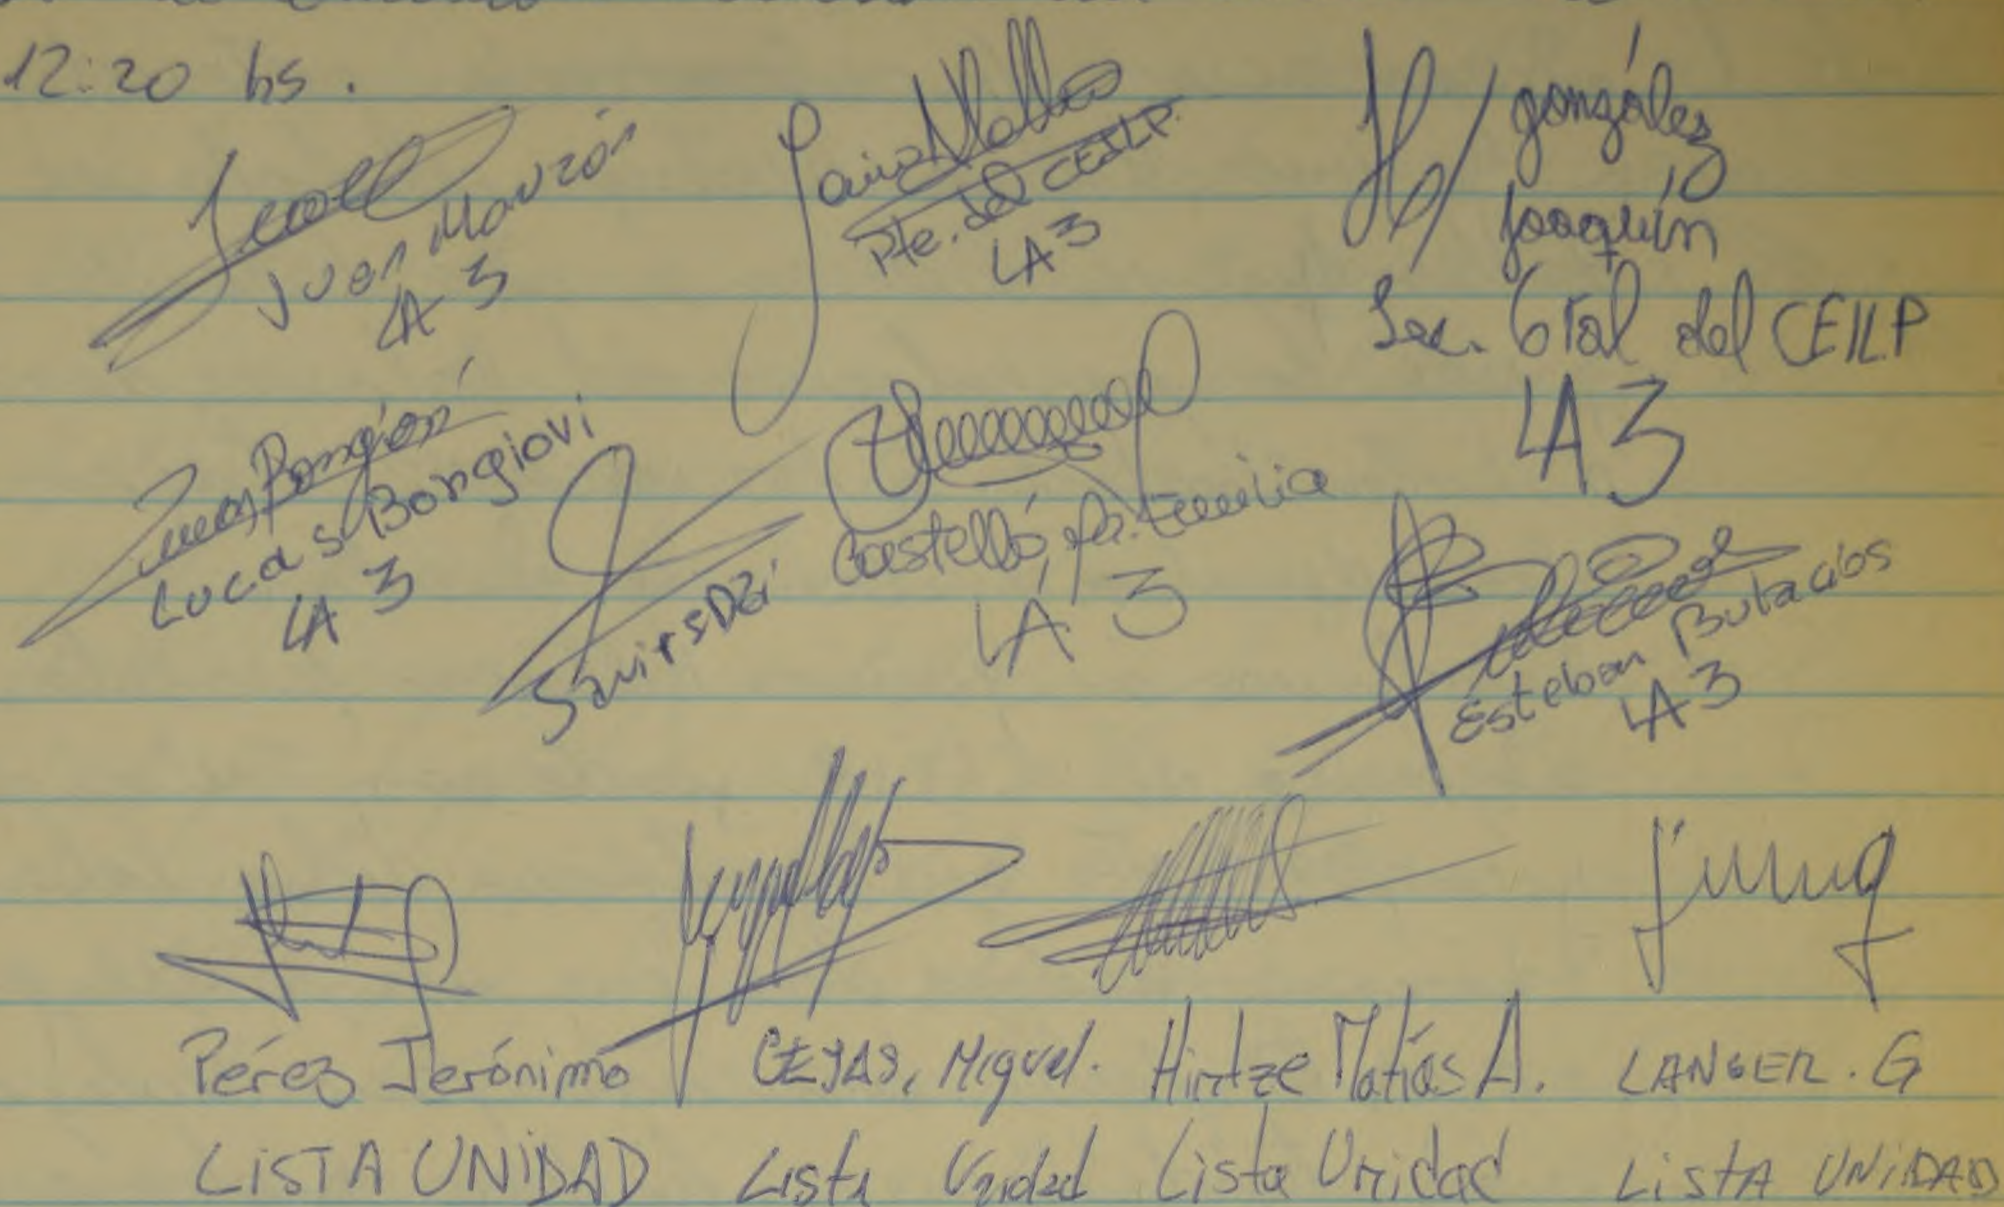 12:20 hs.
Juan Mauzón
LA 3
Pte. del CEILP.
LA 3
González
Joaquín
Sec. Gral del CEILP
LA 3
Lucas Bongiovi
LA 3
Castelló, Ma. Emilia
LA 3
Esteban Bulacios
LA 3
Pérez Jerónimo
LISTA UNIDAD
CEJAS, Miguel.
Lista Unidad
Hintze Matías A.
Lista Unidad
LANGER. G
LISTA UNIDAD